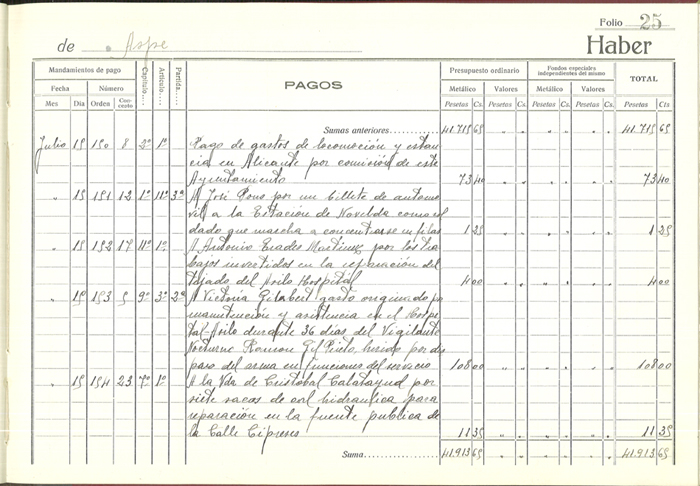 Folio 25
de Aspe Haber
Mandamientos de pago Capítulo Artículo Partida PAGOS Presupuesto ordinario Fondos especiales independientes del mismo TOTAL
Fecha Número Metálico Valores Metálico Valores
Mes Día Orden Concepto Pesetas Cs. Pesetas Cs. Pesetas Cs. Pesetas Cs. Pesetas Cts
Sumas anteriores 41.715 65 " " " " " " 41.715 65
Julio 15 190 8 2º 1º Pago de gastos de locomoción y estan
cia en Alicante por comisión de este
Ayuntamiento 73 40 " " " " " " 73 40
" 15 191 12 1º 11º 3ª A José Pono por un billete de automo
vil a la Estación de Novelda como sol
dado que marcha a concentrarse en filas 1 25 " " " " " " 1 25
" 15 192 17 11º 1º A Antonio Erades Martinez por los tra
bajos invertidos en la reparación del
tejado del Asilo Hospital 4 00 " " " " " " 4 00
" 15 193 5 9º 3º 2ª A Victoria Gilabert gasto originado por
manutención y asistencia en el Hospi
tal-Asilo durante 36 dias del Vigilante
Nocturno Ramon Gil Prieto, herido por dis
paro del arma en funciones del servicio 108 00 " " " " " " 108 00
" 15 194 23 7º 1º A la Vda de Cristobal Calatayud por
siete sacos de cal hidraulica para
reparación en la fuente publica de
la Calle Cipreses 11 35 " " " " " " 11 35
Suma 41.913 65 " " " " " " 41.913 65